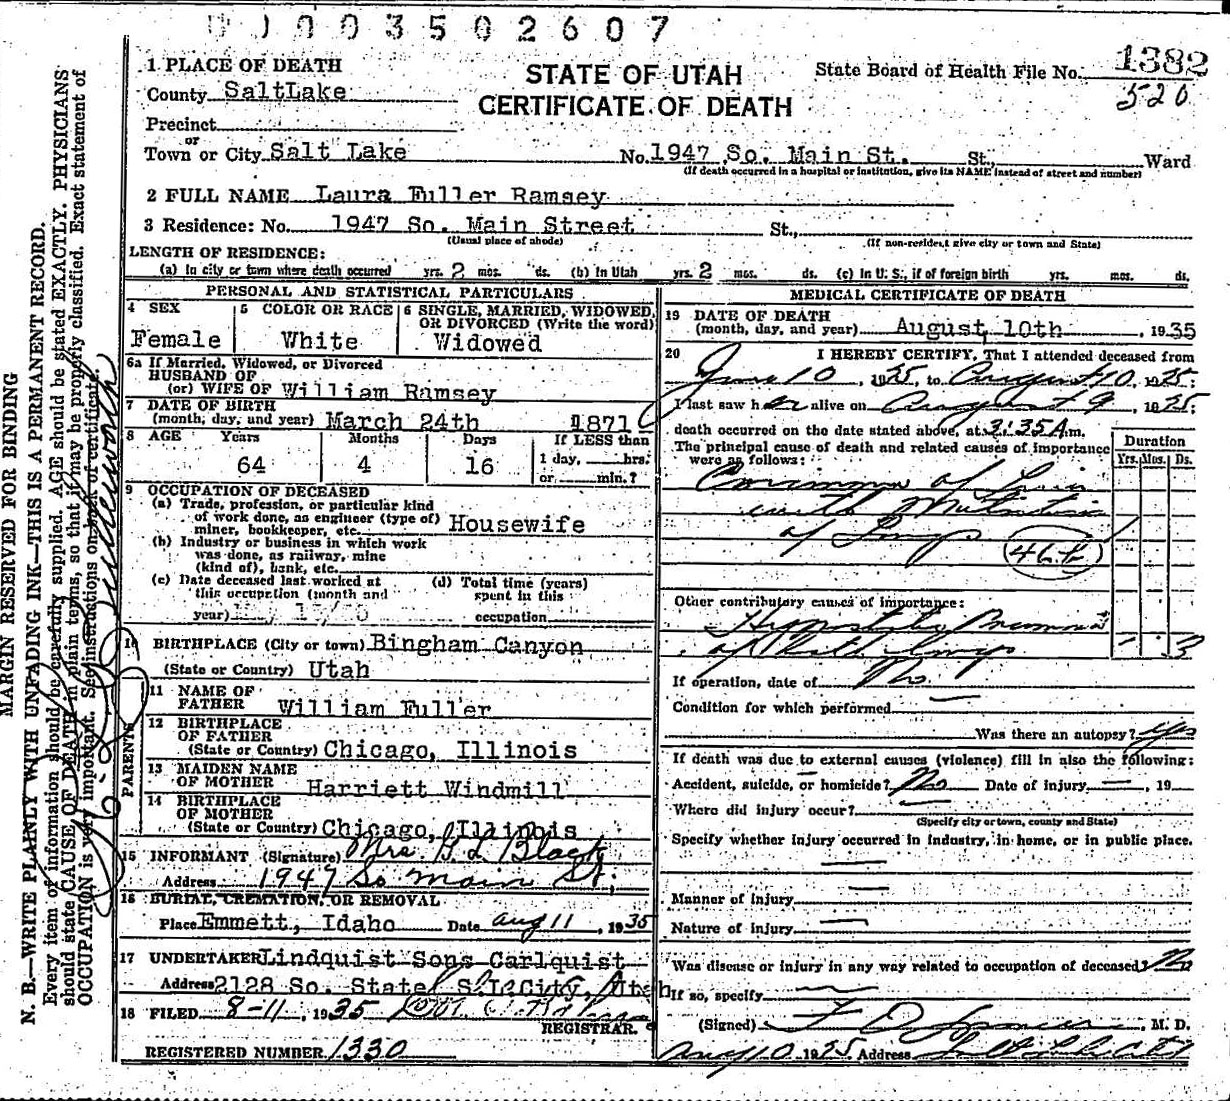 0003502607
1 PLACE OF DEATH
STATE OF UTAH
CERTIFICATE OF DEATH
State Board of Health File No. 1382
520
County SaltLake
Precinct
or
Town or City Salt Lake No. 1947 So. Main St. St., Ward
(If death occurred in a hospital or institution, give its NAME instead of street and number)
2 FULL NAME Laura Fuller Ramsey
3 Residence: No. 1947 So. Main Street St.,
(Usual place of abode) (If non-resident give city or town and State)
LENGTH OF RESIDENCE:
(a) In city or town where death occurred yrs. 2 mos. ds. (b) In Utah yrs. 2 mos. ds. (c) In U. S., if of foreign birth yrs. mos. ds.
PERSONAL AND STATISTICAL PARTICULARS
4 SEX 5 COLOR OR RACE 6 SINGLE, MARRIED, WIDOWED,
OR DIVORCED (Write the word)
Female White Widowed
6a If Married, Widowed, or Divorced
HUSBAND OF
(or) WIFE OF William Ramsey
7 DATE OF BIRTH
(month, day, and year) March 24th 1871
8 AGE Years Months Days If LESS than
64 4 16 1 day, hrs.
or min.?
9 OCCUPATION OF DECEASED
(a) Trade, profession, or particular kind
of work done, as engineer (type of)
miner, bookkeeper, etc. Housewife
(b) Industry or business in which work
was done, as railway, mine
(kind of), bank, etc.
(c) Date deceased last worked at (d) Total time (years)
this occupation (month and spent in this
year) occupation
10 BIRTHPLACE (City or town) Bingham Canyon
(State or Country) Utah
PARENTS
11 NAME OF
FATHER William Fuller
12 BIRTHPLACE
OF FATHER
(State or Country) Chicago, Illinois
13 MAIDEN NAME
OF MOTHER Harriett Windmill
14 BIRTHPLACE
OF MOTHER
(State or Country) Chicago, Illinois
15 INFORMANT (Signature) Mrs. B L Black
Address 1947 So Main St.
16 BURIAL, CREMATION, OR REMOVAL
Place Emmett, Idaho Date Aug 11, 1935
17 UNDERTAKER Lindquist Sons Carlquist
Address 2128 So. State S.L.City, Utah
18 FILED 8-11, 1935
REGISTRAR.
REGISTERED NUMBER 1330
MEDICAL CERTIFICATE OF DEATH
19 DATE OF DEATH
(month, day, and year) August 10th, 1935
20 I HEREBY CERTIFY, That I attended deceased from
June 10, 1935, to August 10, 1935;
I last saw her alive on August 9, 1935;
death occurred on the date stated above, at 3:35A.m.
The principal cause of death and related causes of importance
were as follows:
Duration
Yrs. Mos. Ds.
of
with
of Lungs
Other contributory causes of importance:
Hypostatic Pneumonia
of both lungs - 3
If operation, date of No
Condition for which performed
Was there an autopsy? yes
If death was due to external causes (violence) fill in also the following:
Accident, suicide, or homicide? No Date of injury , 19
Where did injury occur?
(Specify city or town, county and State)
Specify whether injury occurred in industry, in home, or in public place.
Manner of injury
Nature of injury
Was disease or injury in any way related to occupation of deceased? No
If so, specify
(Signed) , M. D.
Aug 10 1935 Address Salt Lake City
MARGIN RESERVED FOR BINDING
N. B.—WRITE PLAINLY WITH UNFADING INK—THIS IS A PERMANENT RECORD.
Every item of information should be carefully supplied. AGE should be stated EXACTLY. PHYSICIANS
should state CAUSE OF DEATH in plain terms, so that it may be properly classified. Exact statement of
OCCUPATION is very important. See instructions on back of certificate.